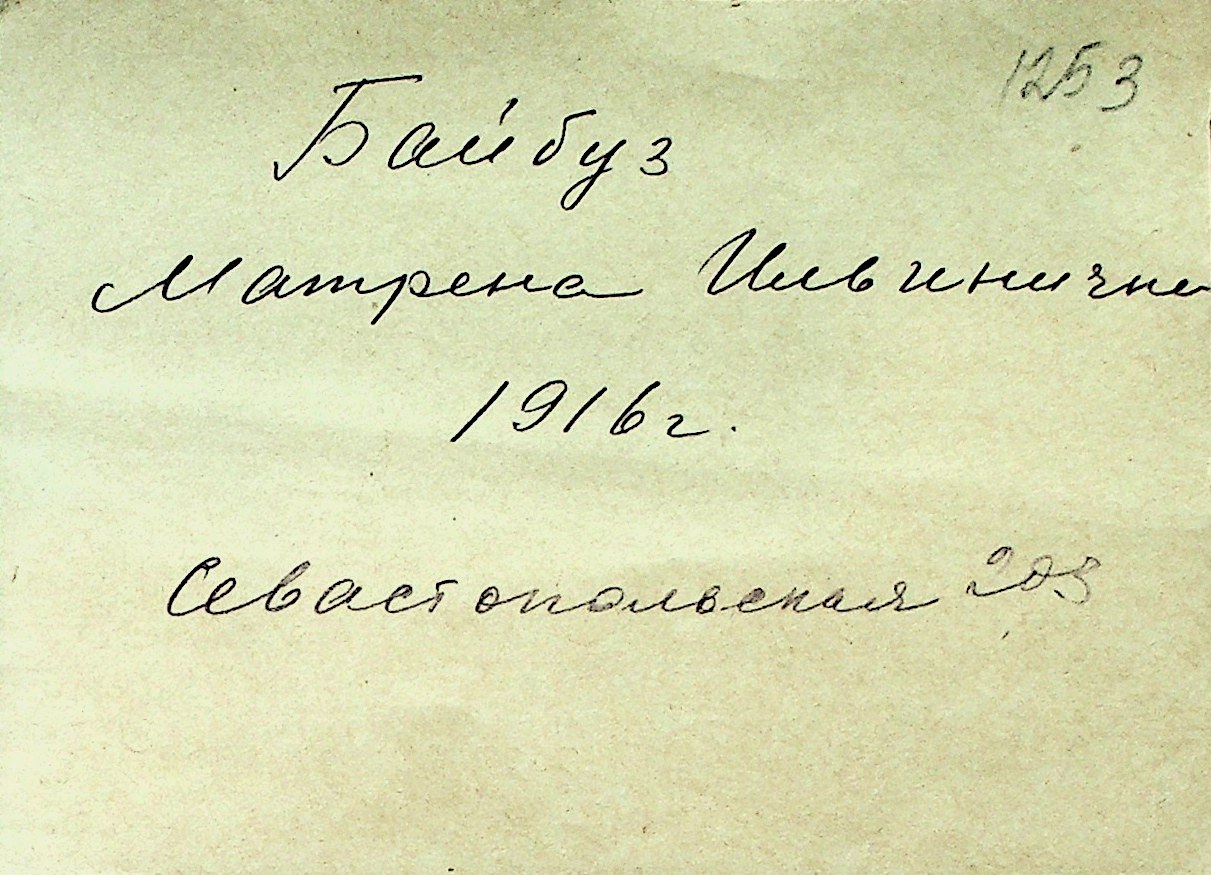 1253
Байбуз
Матрена Ильинична
1916г.
Севастопольская 205